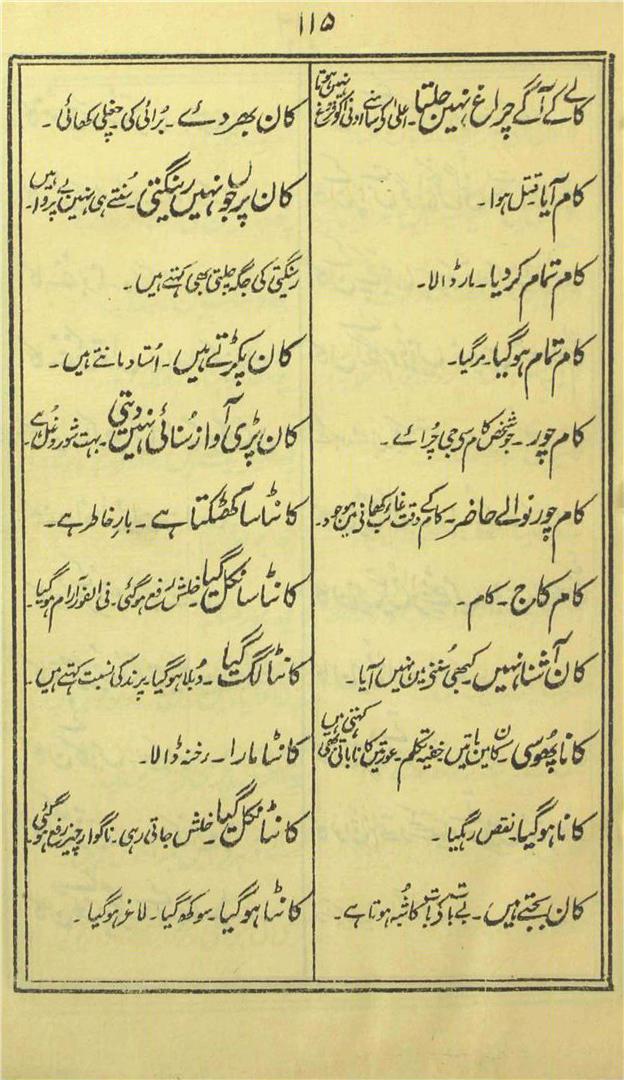 ۱۱۵
کالے کے آگے چراغ نہیں جلتا۔ اعلیٰ کے سامنے ادنیٰ کو فروغ نہیں ہوتا
کام آیا۔ قتل ہوا۔
کام تمام کر دیا۔ مار ڈالا۔
کام تمام ہو گیا۔ مر گیا۔
کام چور۔ جو شخص کام سے جی چرائے۔
کام چور نوالے حاضر۔ کام کے وقت غائب کھانے میں موجود۔
کام کاج۔ کام۔
کان آشنا نہیں کبھی سننے میں نہیں آیا۔
کانا پھوسی۔ کان میں باتیں خفیہ تکلم۔ عورتیں کانا باتی بھی کہتی ہیں
کانا ہو گیا۔ نقص رہ گیا۔
کان بجتے ہیں۔ بے بات کے بات کا شبہ ہوتا ہے۔
کان بھر دئے۔ بُرائی کی۔ چغلی کھائی۔
کان پر جوں نہیں رینگتی۔ سُنتے ہی نہیں بے پروا ہیں۔
رینگتی کی جگہ چلتی بھی کہتے ہیں۔
کان پکڑتے ہیں۔ اُستاد مانتے ہیں۔
کان پڑی آواز سُنائی نہیں دیتی۔ بہت شور و غل ہے
کانٹا سا کھٹکتا ہے۔ بارِ خاطر ہے۔
کانٹا سا نکل گیا۔ خلش رفع ہو گئی۔ فی الفور آرام ہو گیا۔
کانٹا لگ گیا۔ دُبلا ہو گیا۔ پرند کی نسبت کہتے ہیں۔
کانٹا مارا۔ رخنہ ڈالا۔
کانٹا نکل گیا۔ خلش جاتی رہی۔ ناگوار چیز رفع ہو گئی۔
کانٹا ہو گیا۔ سوکھ گیا۔ لاغر ہو گیا۔